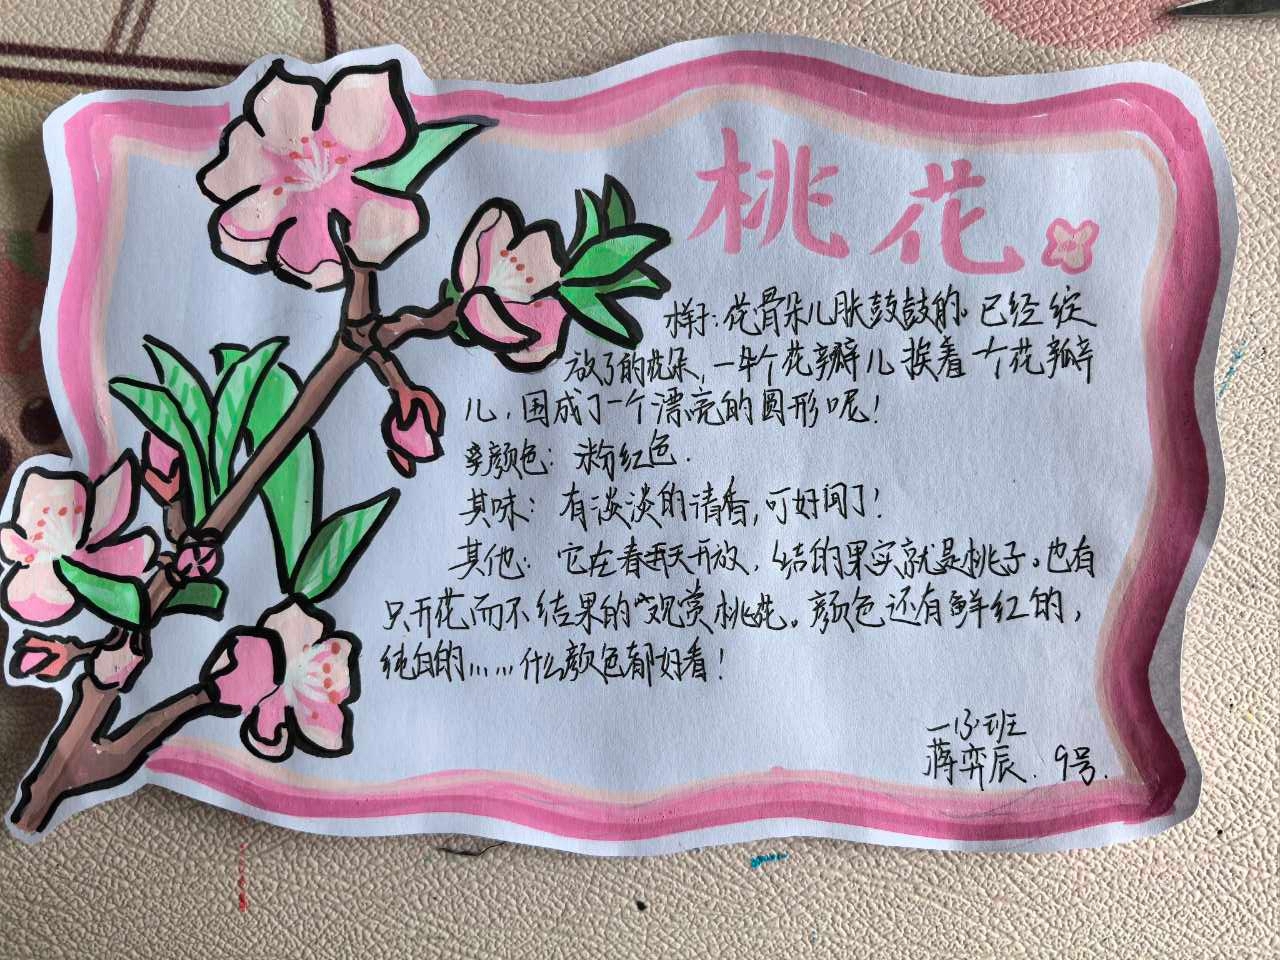 桃花
样子:花骨朵儿胀鼓鼓的。已经绽
放了的花朵,一个花瓣儿挨着一个花瓣
儿,围成了一个漂亮的圆形呢!
颜色:粉红色.
其味:有淡淡的清香,可好闻了!
其他:它在春天开放,结的果实就是桃子。也有
只开花而不结果的“观赏桃花。颜色还有鲜红的,
纯白的……什么颜色都好看!
一13班
蒋弈辰.9号.